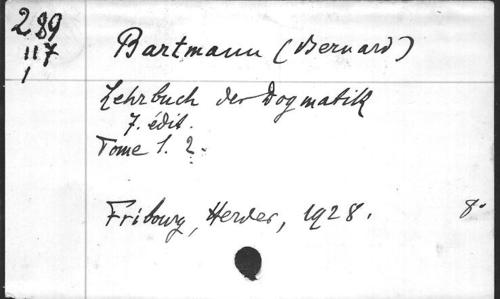 289
117
1
Bartmann (Bernard)
Lehrbuch der Dogmatik
7. édit.
Tome 1. 2.
Fribourg, Herder, 1928.
8°